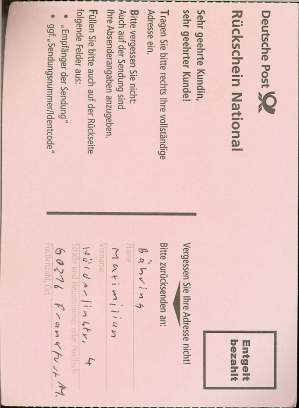 Deutsche Post
Rückschein National
Sehr geehrte Kundin,
sehr geehrter Kunde!
Tragen Sie bitte rechts Ihre vollständige
Adresse ein.
Bitte vergessen Sie nicht:
Auch auf der Sendung sind
Ihre Absenderangaben anzugeben.
Füllen Sie bitte auch auf der Rückseite
folgende Felder aus:
• „Empfänger der Sendung“
• ggf. „Sendungsnummer/Identcode“
Entgelt
bezahlt
Vergessen Sie Ihre Adresse nicht!
Bitte zurücksenden an:
Name
Bähring
Vorname
Maximilian
Straße und Hausnummer oder Postfach
Hölderlinstr. 4
Postleitzahl, Ort
60316 Frankfurt M.